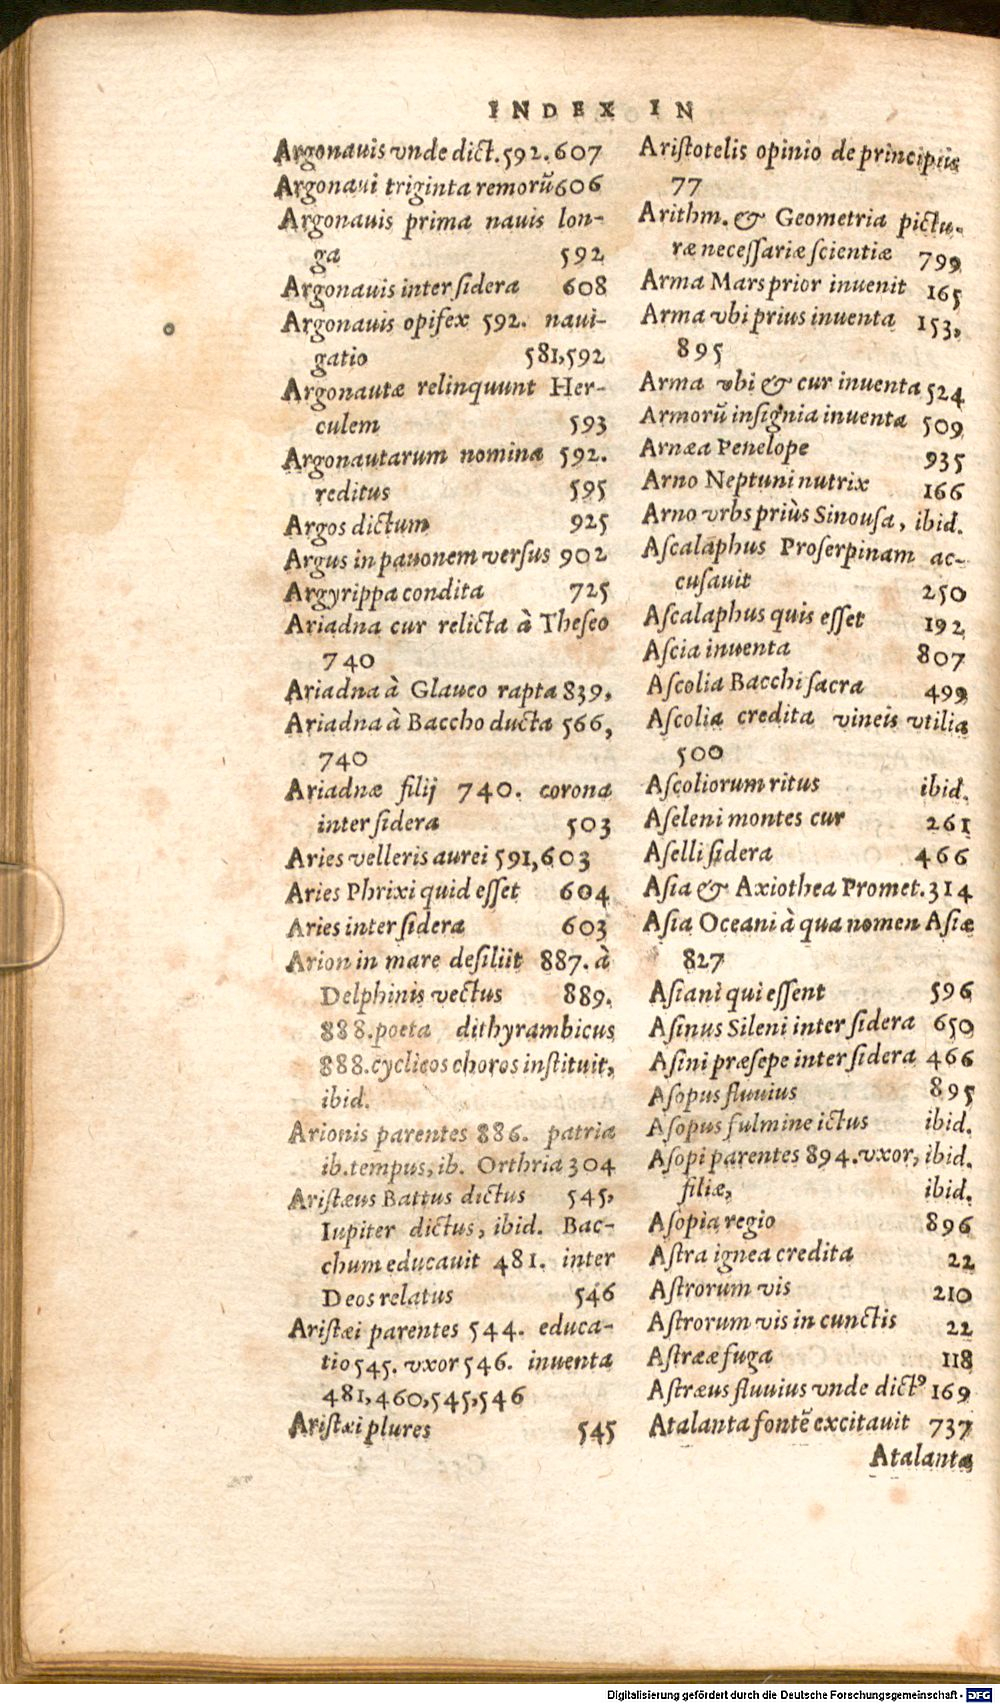 INDEX IN
Argonauis vnde dict. 592. 607
Argonaui triginta remorũ 606
Argonauis prima nauis lon-
ga 592
Argonauis inter sidera 608
Argonauis opifex 592. naui-
gatio 581,592
Argonautæ relinquunt Her-
culem 593
Argonautarum nomina 592.
reditus 595
Argos dictum 925
Argus in pauonem versus 902
Argyrippa condita 725
Ariadna cur relicta à Theseo
740
Ariadna à Glauco rapta 839,
Ariadna à Baccho ducta 566,
740
Ariadnæ filij 740. corona
inter sidera 503
Aries velleris aurei 591,603
Aries Phrixi quid esset 604
Aries inter sidera 603
Arion in mare desiliit 887. à
Delphinis vectus 889.
888. poeta dithyrambicus
888. cyclicos choros instituit,
ibid.
Arionis parentes 886. patria
ib. tempus, ib. Orthria 304
Aristæus Battus dictus 545,
Iupiter dictus, ibid. Bac-
chum educauit 481. inter
Deos relatus 546
Aristæi parentes 544. educa-
tio 545. vxor 546. inuenta
481,460,545,546
Aristæi plures 545
Aristotelis opinio de principiis
77
Arithm. & Geometria pictu-
ræ necessariæ scientiæ 799
Arma Mars prior inuenit 165
Arma vbi prius inuenta 153,
895
Arma vbi & cur inuenta 524
Armorũ insignia inuenta 509
Arnæa Penelope 935
Arno Neptuni nutrix 166
Arno vrbs priùs Sinousa, ibid.
Ascalaphus Proserpinam ac-
cusauit 250
Ascalaphus quis esset 192
Ascia inuenta 807
Ascolia Bacchi sacra 499
Ascolia credita vineis vtilia
500
Ascoliorum ritus ibid.
Aseleni montes cur 261
Aselli sidera 466
Asia & Axiothea Promet. 314
Asia Oceani à qua nomen Asiæ
827
Asiani qui essent 596
Asinus Sileni inter sidera 650
Asini præsepe inter sidera 466
Asopus fluuius 895
Asopus fulmine ictus ibid.
Asopi parentes 894. vxor, ibid.
filiæ, ibid.
Asopia regio 896
Astra ignea credita 22
Astrorum vis 210
Astrorum vis in cunctis 22
Astrææ fuga 118
Astræus fluuius vnde dictꝰ 169
Atalanta fontẽ excitauit 737
Atalanta
Digitalisierung gefördert durch die Deutsche Forschungsgemeinschaft - DFG